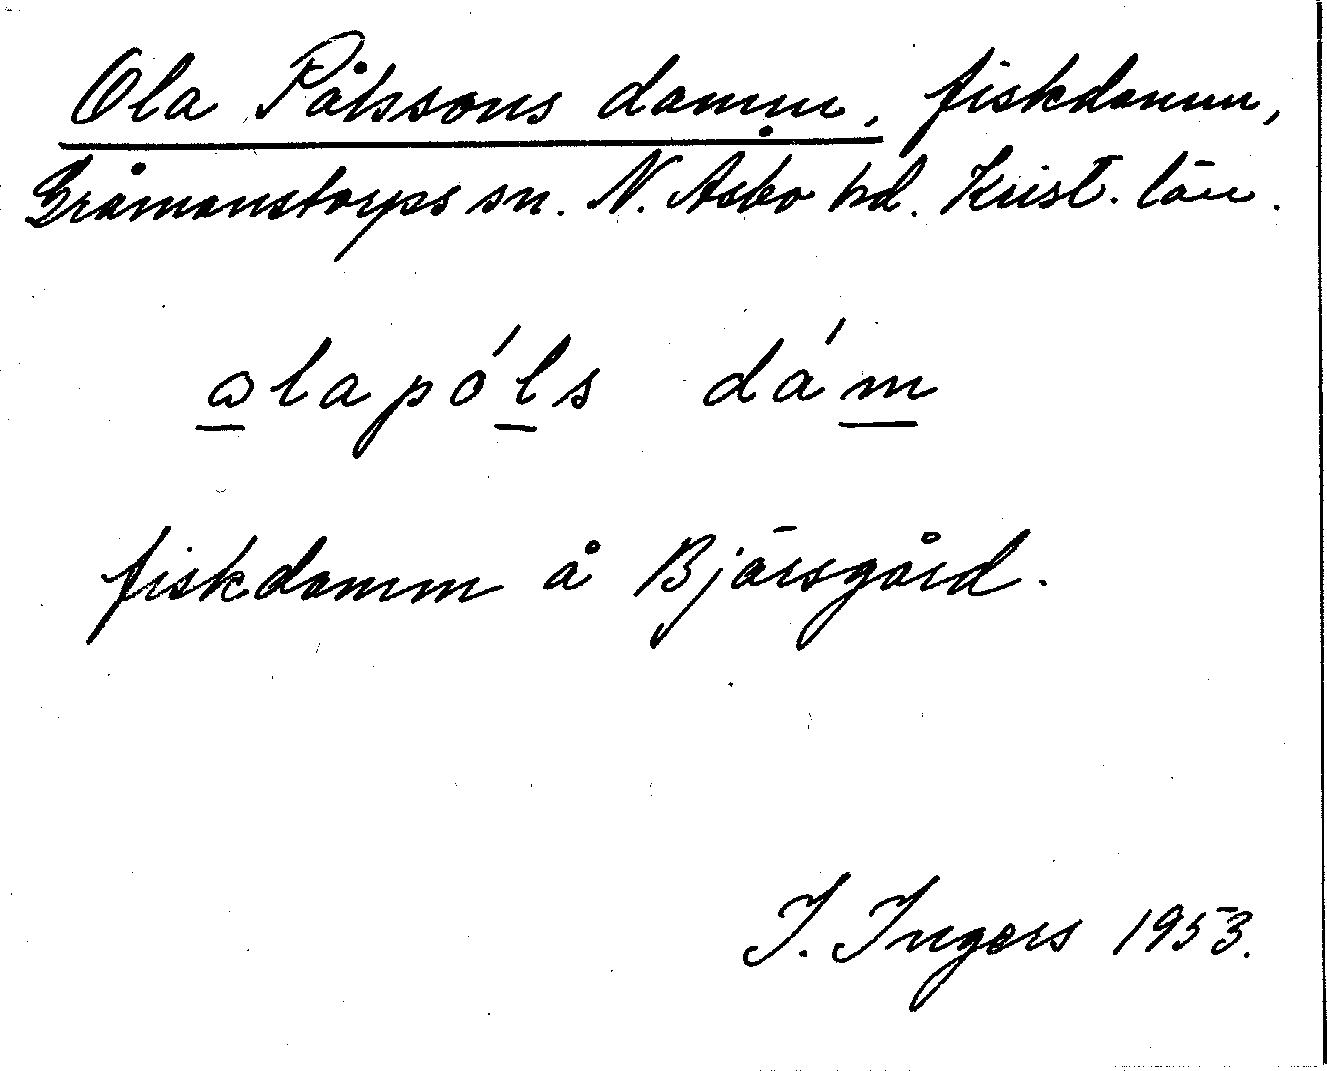 Ola Pålssons damm, fiskdamm,
Gråmanstorps sn. N. Asbo hd. Krist. län.
alapóls dám
fiskdamm å Bjärsgård.
I. Ingers 1953.